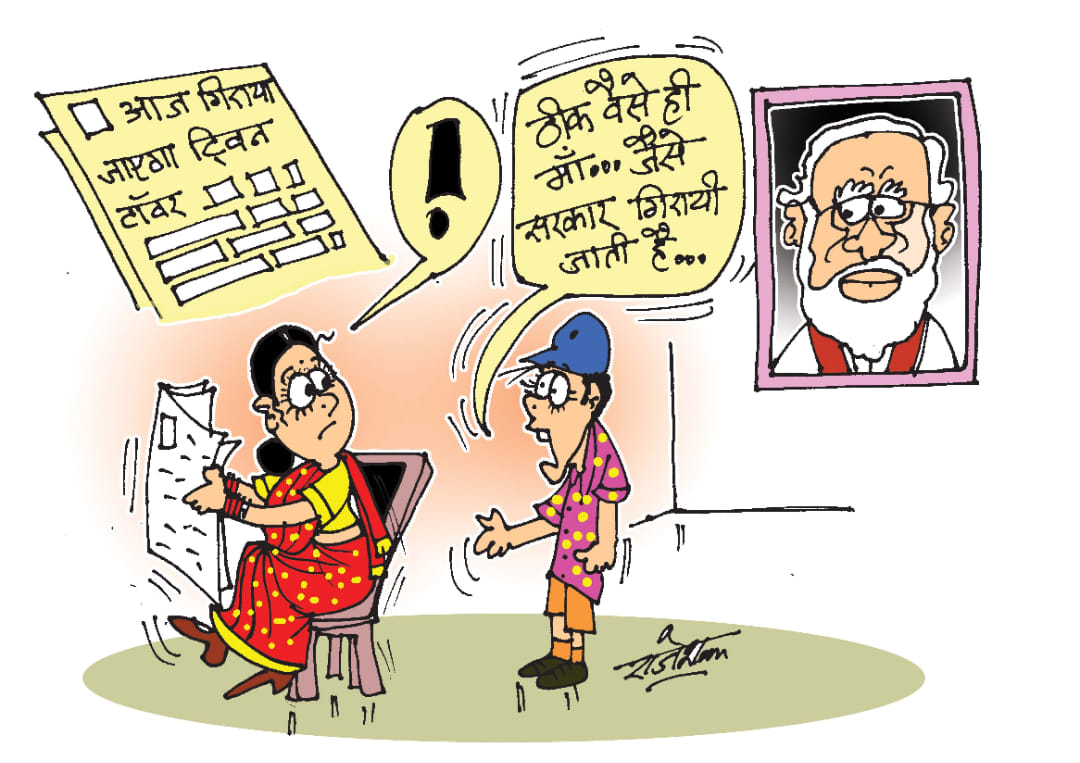 आज गिराया
जाएगा ट्विन
टॉवर
!
ठीक वैसे ही
माँ... जैसे
सरकार गिरायी
जाती है...